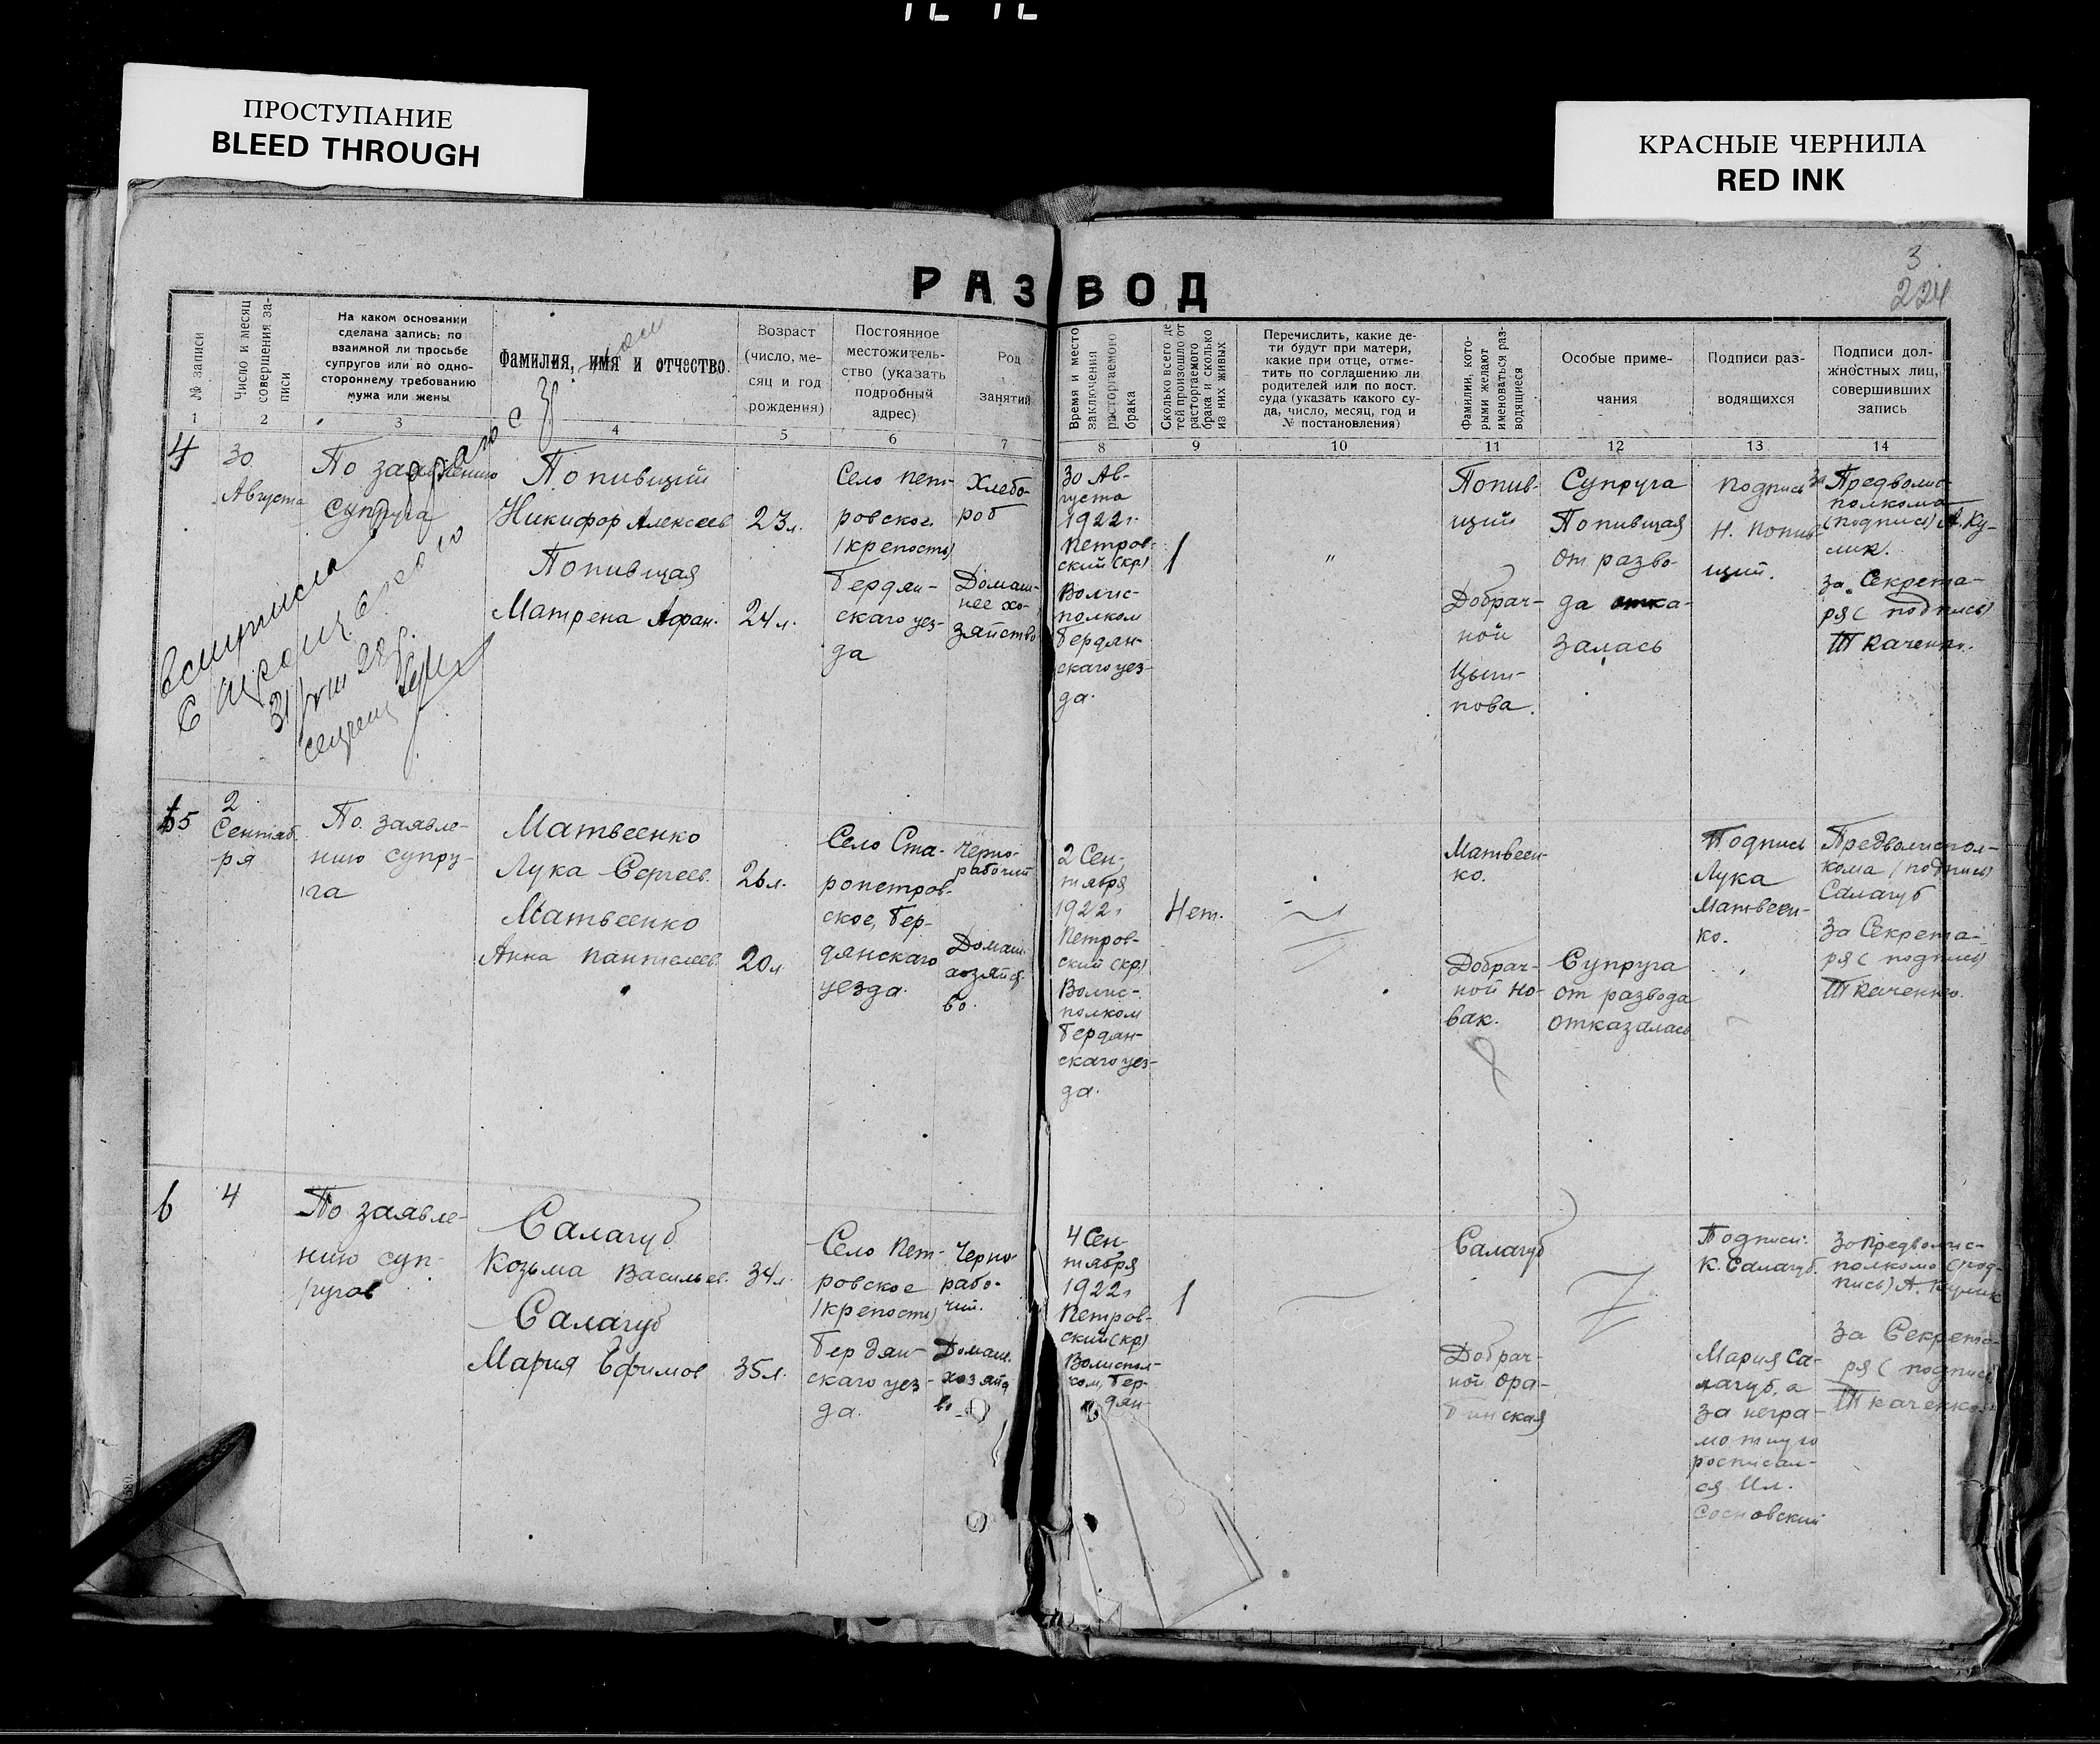 ПРОСТУПАНИЕ
BLEED THROUGH
КРАСНЫЕ ЧЕРНИЛА
RED INK
3
224
РАЗВОД
№ записи
Число и месяц
совершения за-
писи
На каком основании
сделана запись: по
взаимной ли просьбе
супругов или по одно-
стороннему требованию
мужа или жены
Фамилия, имя и отчество.
Возраст
(число, ме-
сяц и год
рождения)
Постоянное
местожитель-
ство (указать
подробный
адрес)
Род
занятий
Время и место
заключения
расторгаемого
брака
Сколько всего де
тей произошло от
расторгаемого
брака и сколько
из них живых
Перечислить, какие де-
ти будут при матери,
какие при отце, отме-
тить по соглашению ли
родителей или по пост.
суда (указать какого су-
да, число, месяц, год и
№ постановления)
фамилии, кото-
рыми желают
именоваться раз-
водящиеся
Особые приме-
чания
Подписи раз-
водящихся
Подписи дол-
жностных лиц,
совершивших
запись
1 2 3 4 5 6 7 8 9 10 11 12 13 14
4
30
Августа
По заявлению
супруга
Попивщий
Никифор Алексеев
23л.
Попивщая
Матрена Афан.
24л.
Село Пет-
ровское
(крепость)
Бердян-
скаго уез-
да
Хлебо-
роб
Домаш-
нее хо-
зяйство
30 Ав-
густа
1922г.
Петров-
ский (кр)
Волис-
полком
Бердян-
скаго уез-
да.
1
"
Попив-
щий
Добрач-
ной
Цыт-
пова.
Супруга
Попивщая
от разво-
да отка-
залась
подпись
Н. Попив-
щий.
За Предволис-
полкома
(подпись) А. Ку-
лик.
за Секрета-
ря (подпись)
Ткаченко.
31/VIII 28г.
5
2
Сентяб.
ря
По заявле-
нию супру-
га
Матвеенко
Лука Сергеев.
26л.
Матвеенко
Анна Пантелеев
20л.
Село Ста-
ропетров-
ское, Бер-
дянскаго
уезда.
Черно-
рабочий
Домаш.
хозяйст-
во.
2 Сен-
тября
1922г
Петров-
ский (кр)
Волис-
полком
Бердян-
скаго уез-
да.
Нет.
Матвеен-
ко.
Добрач-
ной Но-
вак.
Супруга
от развода
отказалась
Подпись
Лука
Матвеен-
ко.
Предволиспол-
кома (подпись)
Салагуб
За Секрета-
ря (подпись)
Ткаченко.
6
4
По заявле-
нию суп-
ругов
Салагуб
Козьма Васильев.
34л.
Салагуб
Мария Ефимов
35л.
Село Пет-
ровское
(крепость)
Бердян-
скаго уез-
да.
Черно-
рабо-
чий.
Домаш.
хозяйст
во
4 Сен-
тября
1922г
Петров-
ский (кр)
Волиспол-
ком, Бер-
дян-
1
Салагуб
Добрач-
ной Ора-
бинская
Подписи:
К. Салагуб.
Мария Са-
лагуб, а
за негра-
мотную
росписал-
ся Ил.
Сосновский
За Предволис-
полкома (под-
пись) А. Кулик
За Секрета-
ря (подпись
Ткаченко